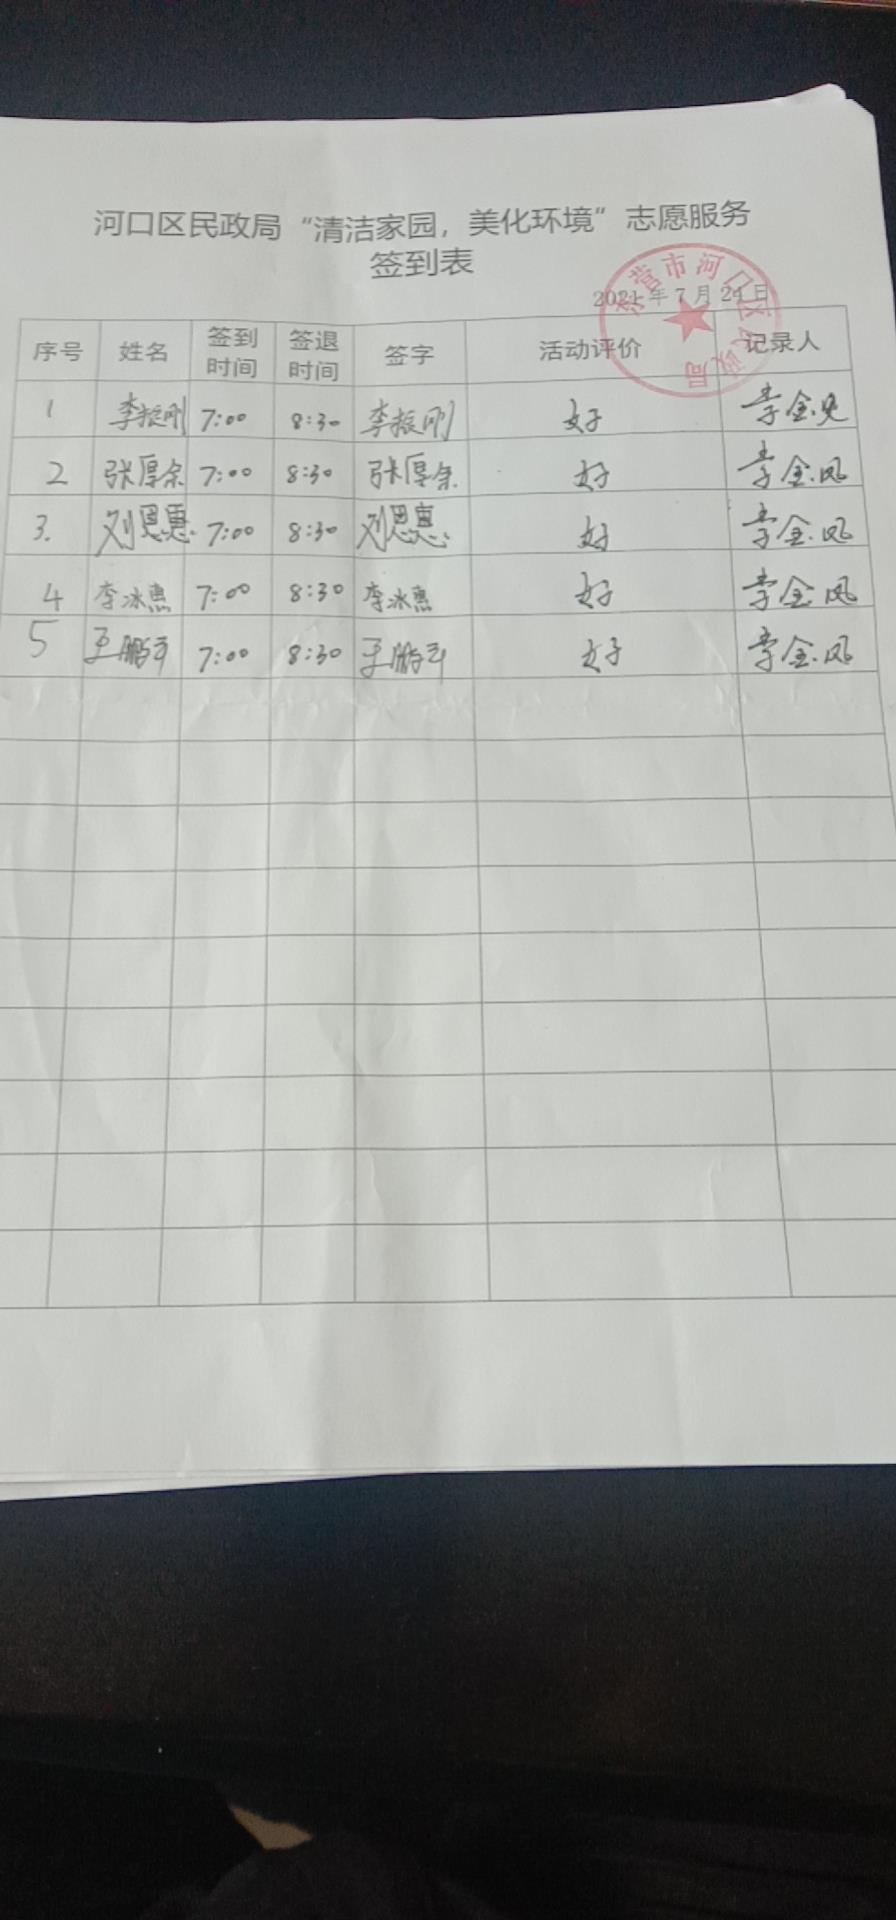 河口区民政局“清洁家园，美化环境”志愿服务
签到表
东营市河口区民政局
2021年7月24日
序号 姓名 签到时间 签退时间 签字 活动评价 记录人
1 李振刚 7:00 8:30 李振刚 好 李金凤
2 张厚余 7:00 8:30 张厚余 好 李金凤
3. 刘恩惠 7:00 8:30 刘恩惠 好 李金凤
4 李冰惠 7:00 8:30 李冰惠 好 李金凤
5 王鹏 7:00 8:30 王鹏 好 李金凤